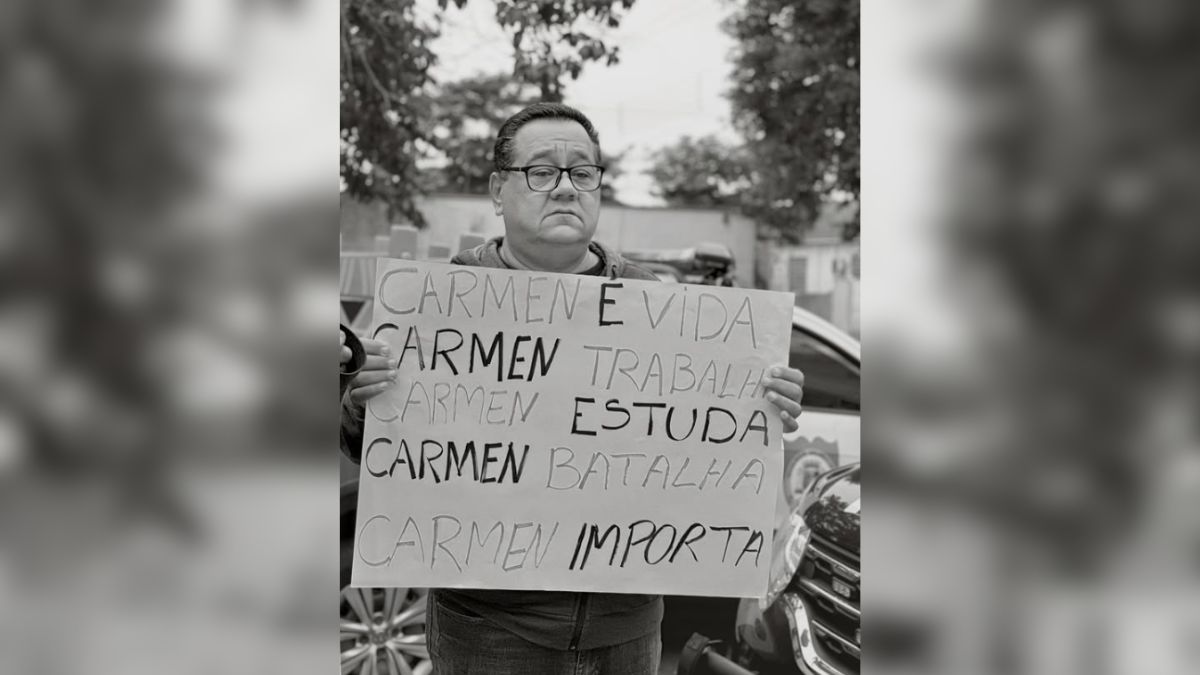 CARMEN É VIDA
CARMEN TRABALH
CARMEN ESTUDA
CARMEN BATALHA
CARMEN IMPORTA